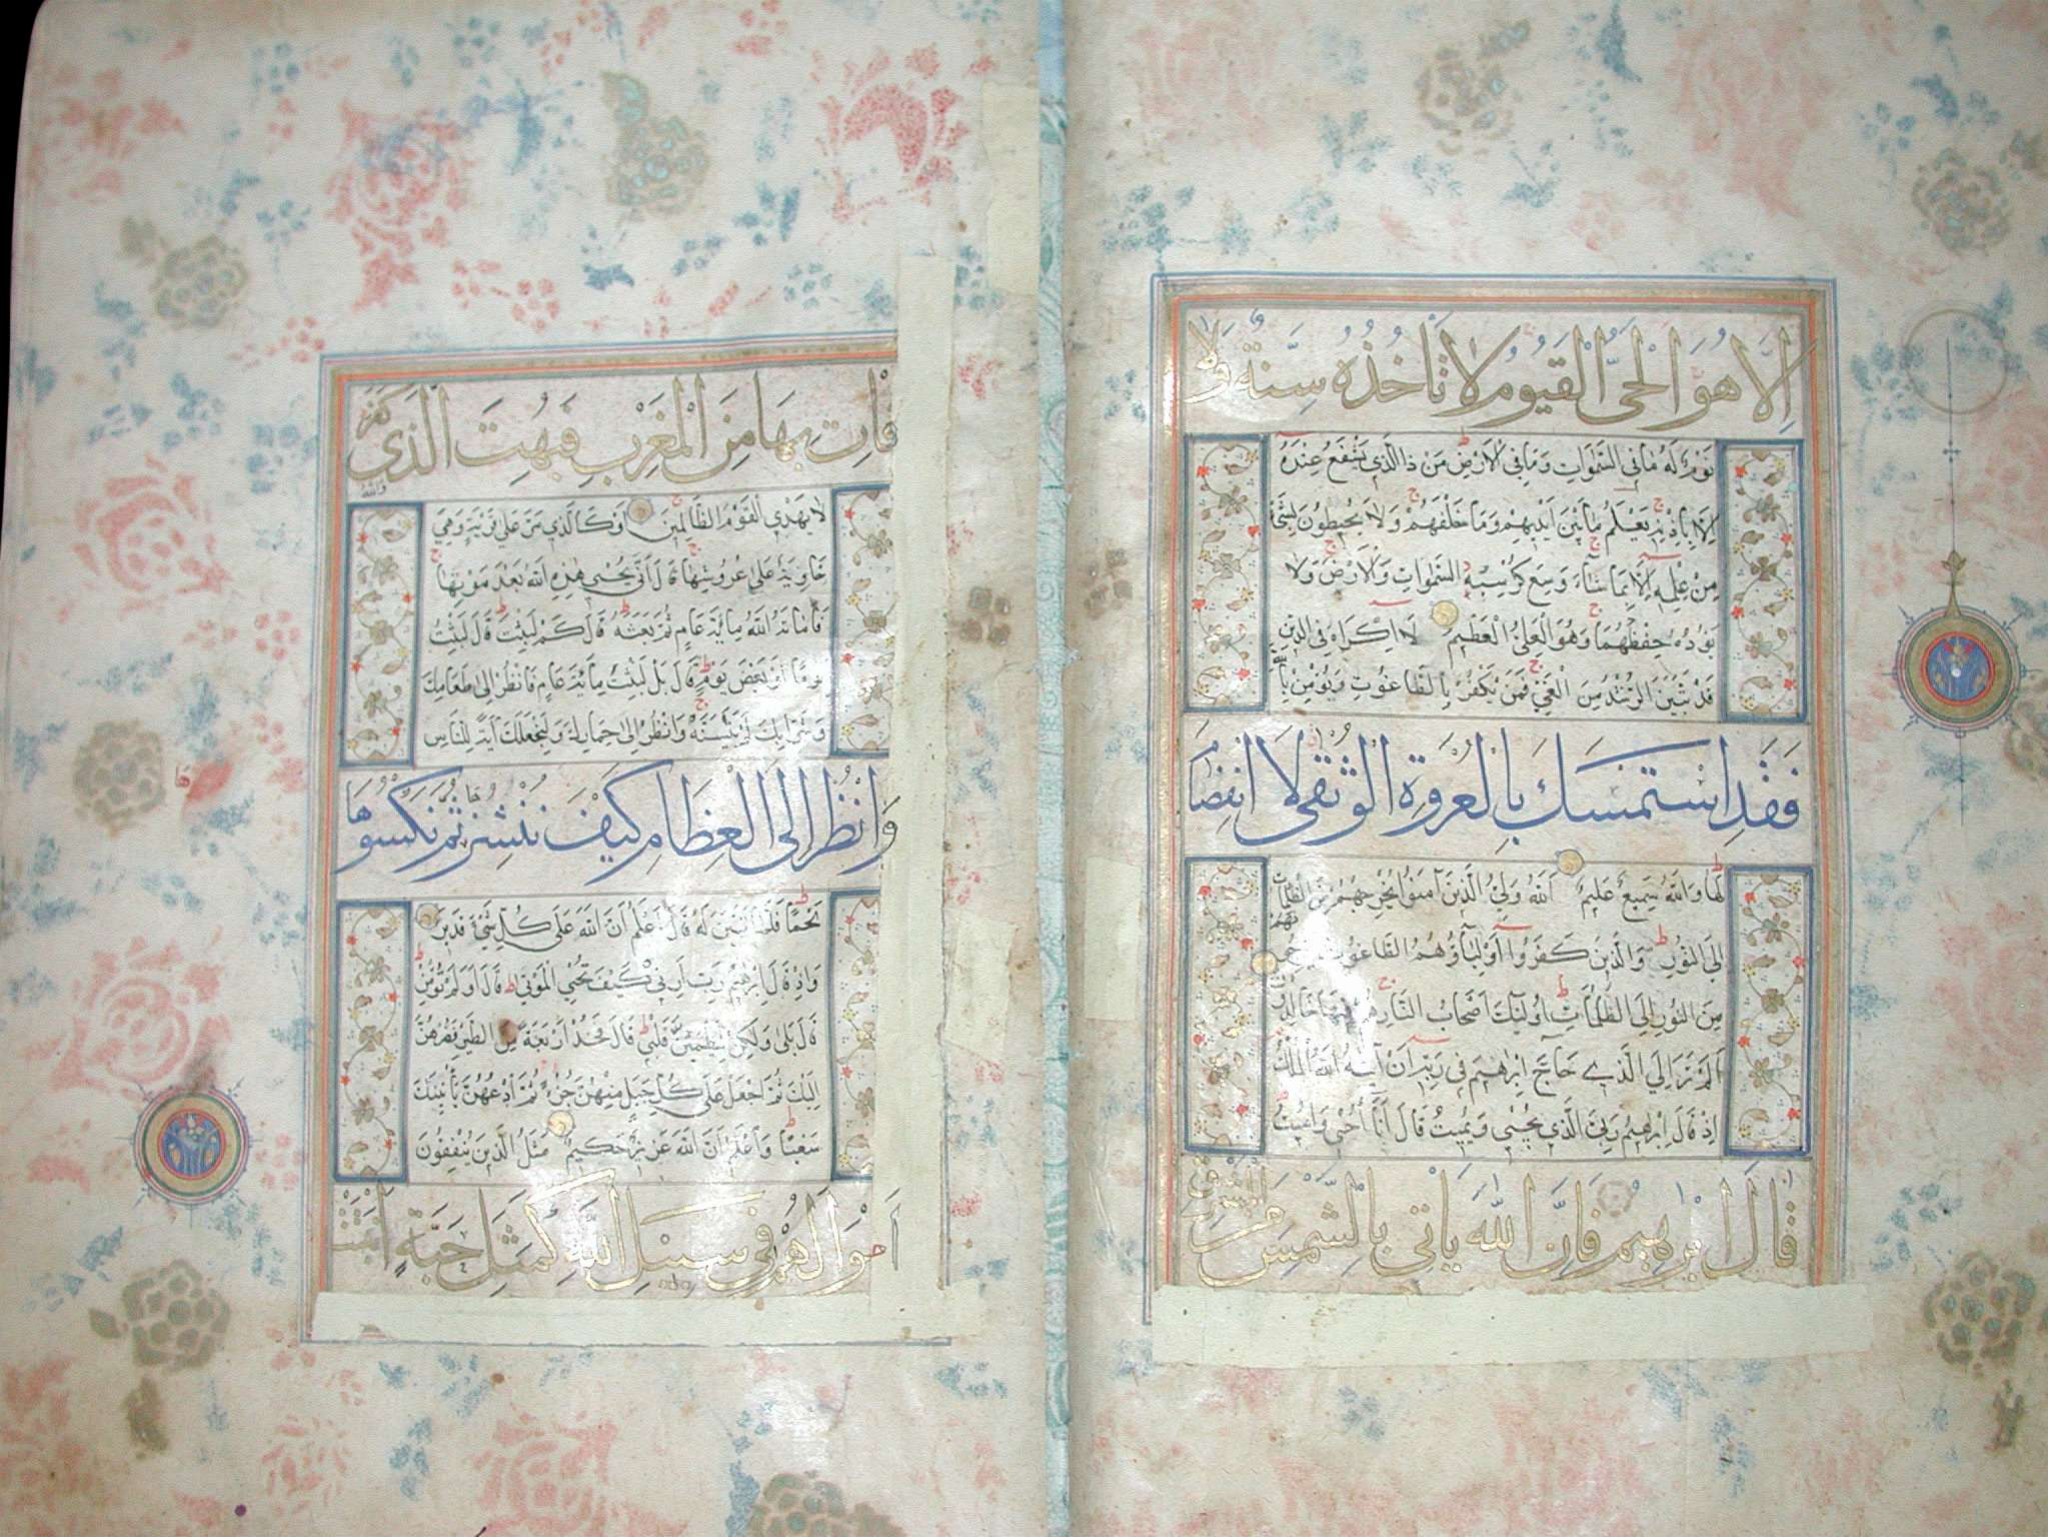 اِلَّا هُوَ الْحَيُّ الْقَيُّومُ لَا تَأْخُذُهُ سِنَةٌ وَلَا
نَوْمٌ لَهُ مَا فِي السَّمٰوَاتِ وَمَا فِي الْاَرْضِ مَنْ ذَا الَّذِي يَشْفَعُ عِنْدَهُ
اِلَّا بِاِذْنِهِ يَعْلَمُ مَا بَيْنَ اَيْدِيهِمْ وَمَا خَلْفَهُمْ وَلَا يُحِيطُونَ بِشَيْءٍ
مِنْ عِلْمِهِ اِلَّا بِمَا شَاءَ وَسِعَ كُرْسِيُّهُ السَّمٰوَاتِ وَالْاَرْضَ وَلَا
يَؤُدُهُ حِفْظُهُمَا وَهُوَ الْعَلِيُّ الْعَظِيمُ لَا اِكْرَاهَ فِي الدِّينِ
قَدْ تَبَيَّنَ الرُّشْدُ مِنَ الْغَيِّ فَمَنْ يَكْفُرْ بِالطَّاغُوتِ وَيُؤْمِنْ بِاللَّهِ
فَقَدِ اسْتَمْسَكَ بِالْعُرْوَةِ الْوُثْقٰى لَا انْفِصَامَ
لَهَا وَاللَّهُ سَمِيعٌ عَلِيمٌ اَللَّهُ وَلِيُّ الَّذِينَ آمَنُوا يُخْرِجُهُمْ مِنَ الظُّلُمَاتِ
اِلَى النُّورِ وَالَّذِينَ كَفَرُوا اَوْلِيَاؤُهُمُ الطَّاغُوتُ يُخْرِجُونَهُمْ
مِنَ النُّورِ اِلَى الظُّلُمَاتِ اُولٰئِكَ اَصْحَابُ النَّارِ هُمْ فِيهَا خَالِدُونَ
اَلَمْ تَرَ اِلَى الَّذِي حَاجَّ اِبْرٰهِيمَ فِي رَبِّهِ اَنْ آتٰيهُ اللَّهُ الْمُلْكَ
اِذْ قَالَ اِبْرٰهِيمُ رَبِّيَ الَّذِي يُحْيِي وَيُمِيتُ قَالَ اَنَا اُحْيِي وَاُمِيتُ
قَالَ اِبْرٰهِيمُ فَاِنَّ اللَّهَ يَاْتِي بِالشَّمْسِ مِنَ الْمَشْرِقِ
فَاْتِ بِهَا مِنَ الْمَغْرِبِ فَبُهِتَ الَّذِي كَفَرَ وَاللَّهُ
لَا يَهْدِي الْقَوْمَ الظَّالِمِينَ اَوْ كَالَّذِي مَرَّ عَلٰى قَرْيَةٍ وَهِيَ
خَاوِيَةٌ عَلٰى عُرُوشِهَا قَالَ اَنّٰى يُحْيِي هٰذِهِ اللَّهُ بَعْدَ مَوْتِهَا
فَاَمَاتَهُ اللَّهُ مِائَةَ عَامٍ ثُمَّ بَعَثَهُ قَالَ كَمْ لَبِثْتَ قَالَ لَبِثْتُ
يَوْمًا اَوْ بَعْضَ يَوْمٍ قَالَ بَلْ لَبِثْتَ مِائَةَ عَامٍ فَانْظُرْ اِلٰى طَعَامِكَ
وَشَرَابِكَ لَمْ يَتَسَنَّهْ وَانْظُرْ اِلٰى حِمَارِكَ وَلِنَجْعَلَكَ آيَةً لِلنَّاسِ
وَانْظُرْ اِلَى الْعِظَامِ كَيْفَ نُنْشِزُهَا ثُمَّ نَكْسُوهَا
لَحْمًا فَلَمَّا تَبَيَّنَ لَهُ قَالَ اَعْلَمُ اَنَّ اللَّهَ عَلٰى كُلِّ شَيْءٍ قَدِيرٌ
وَاِذْ قَالَ اِبْرٰهِيمُ رَبِّ اَرِنِي كَيْفَ تُحْيِي الْمَوْتٰى قَالَ اَوَلَمْ تُؤْمِنْ
قَالَ بَلٰى وَلٰكِنْ لِيَطْمَئِنَّ قَلْبِي قَالَ فَخُذْ اَرْبَعَةً مِنَ الطَّيْرِ فَصُرْهُنَّ
اِلَيْكَ ثُمَّ اجْعَلْ عَلٰى كُلِّ جَبَلٍ مِنْهُنَّ جُزْءًا ثُمَّ ادْعُهُنَّ يَاْتِينَكَ
سَعْيًا وَاعْلَمْ اَنَّ اللَّهَ عَزِيزٌ حَكِيمٌ مَثَلُ الَّذِينَ يُنْفِقُونَ
اَمْوَالَهُمْ فِي سَبِيلِ اللَّهِ كَمَثَلِ حَبَّةٍ اَنْبَتَتْ